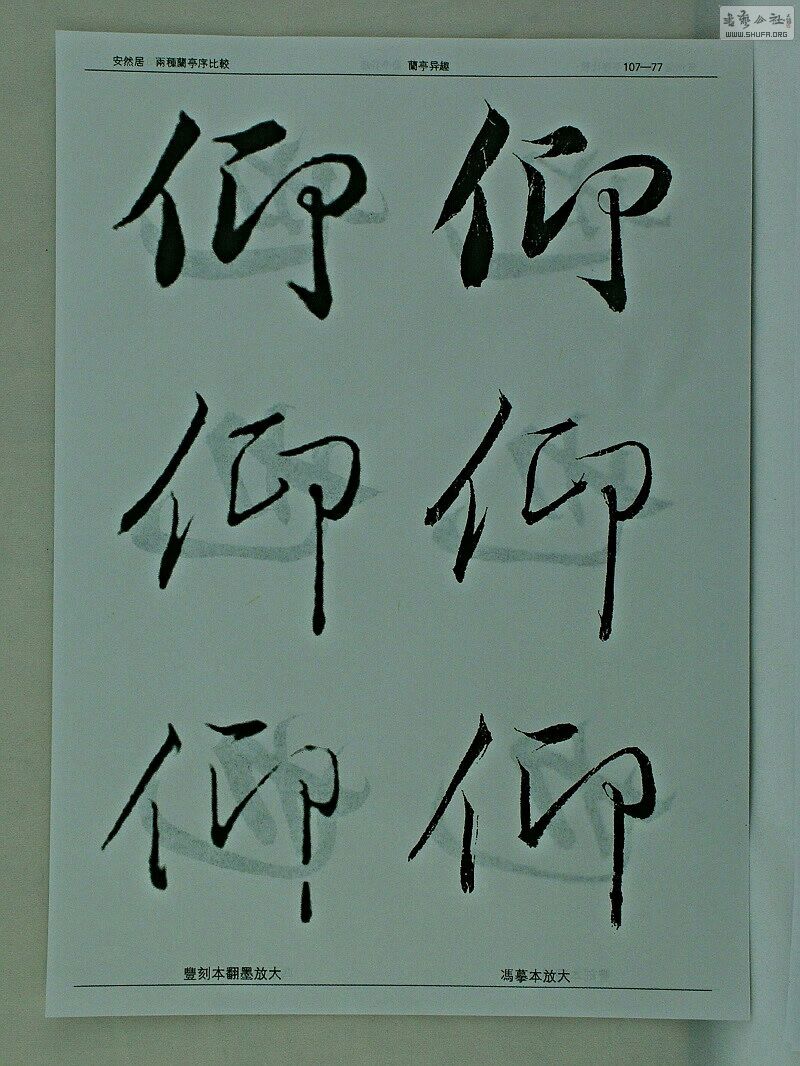 书艺公社
WWW.SHUFA.ORG
安然居 兩種蘭亭序比較 蘭亭异趣 107—77
仰 仰
仰 仰
仰 仰
豐刻本翻墨放大 馮摹本放大